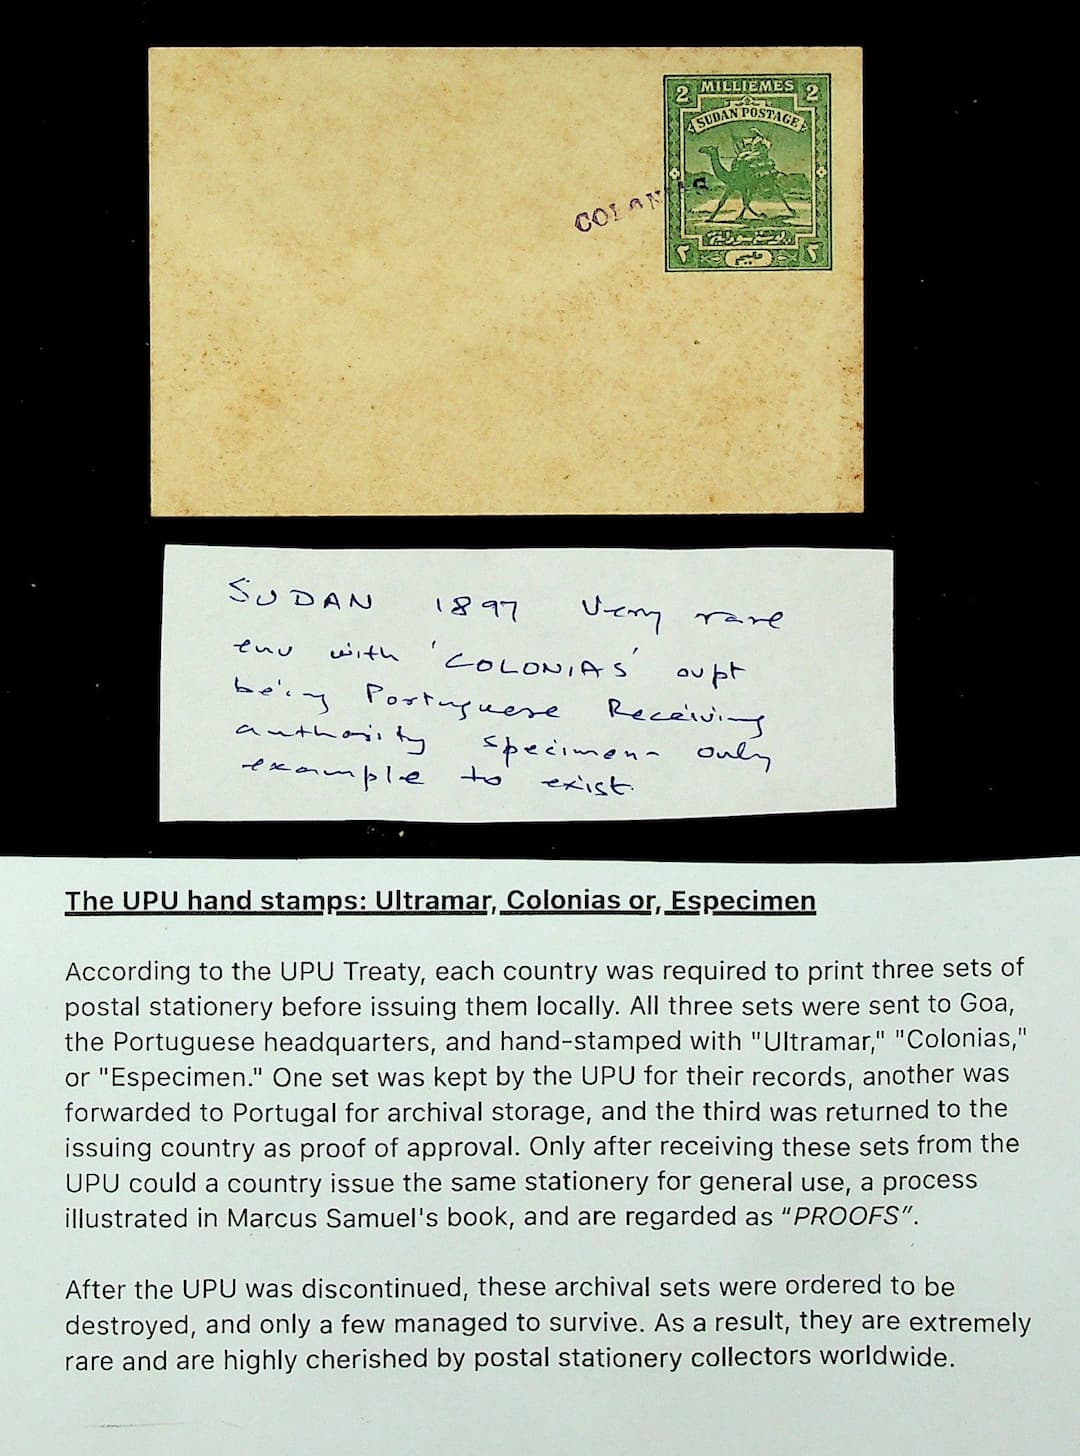 2 MILLIEMES 2
SUDAN POSTAGE
COLONIAS
٢ مليم ٢
SUDAN 1897 Very rare
env with 'COLONIAS' ovpt
being Portuguese Receiving
authority specimen - only
example to exist.
The UPU hand stamps: Ultramar, Colonias or, Especimen
According to the UPU Treaty, each country was required to print three sets of
postal stationery before issuing them locally. All three sets were sent to Goa,
the Portuguese headquarters, and hand-stamped with "Ultramar," "Colonias,"
or "Especimen." One set was kept by the UPU for their records, another was
forwarded to Portugal for archival storage, and the third was returned to the
issuing country as proof of approval. Only after receiving these sets from the
UPU could a country issue the same stationery for general use, a process
illustrated in Marcus Samuel's book, and are regarded as “PROOFS”.
After the UPU was discontinued, these archival sets were ordered to be
destroyed, and only a few managed to survive. As a result, they are extremely
rare and are highly cherished by postal stationery collectors worldwide.